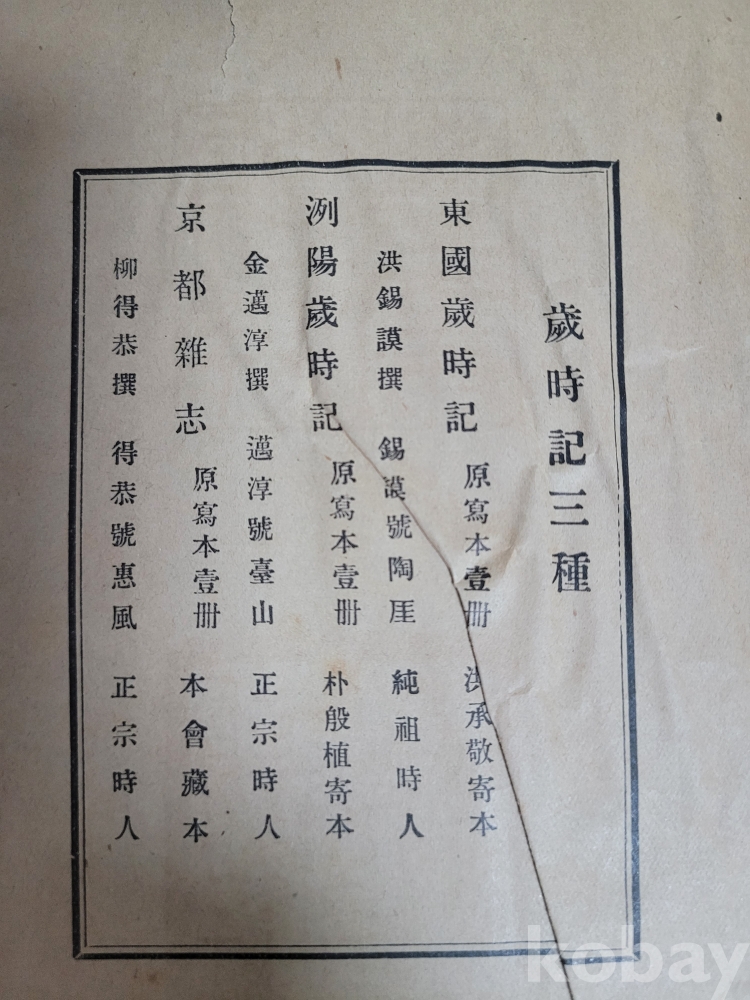 歲時記三種
東國歲時記 原寫本壹冊 洪承敬寄本
洪錫謨撰 錫謨號陶厓 純祖時人
洌陽歲時記 原寫本壹冊 朴殷植寄本
金邁淳撰 邁淳號臺山 正宗時人
京都雜志 原寫本壹冊 本會藏本
柳得恭撰 得恭號惠風 正宗時人
kobay